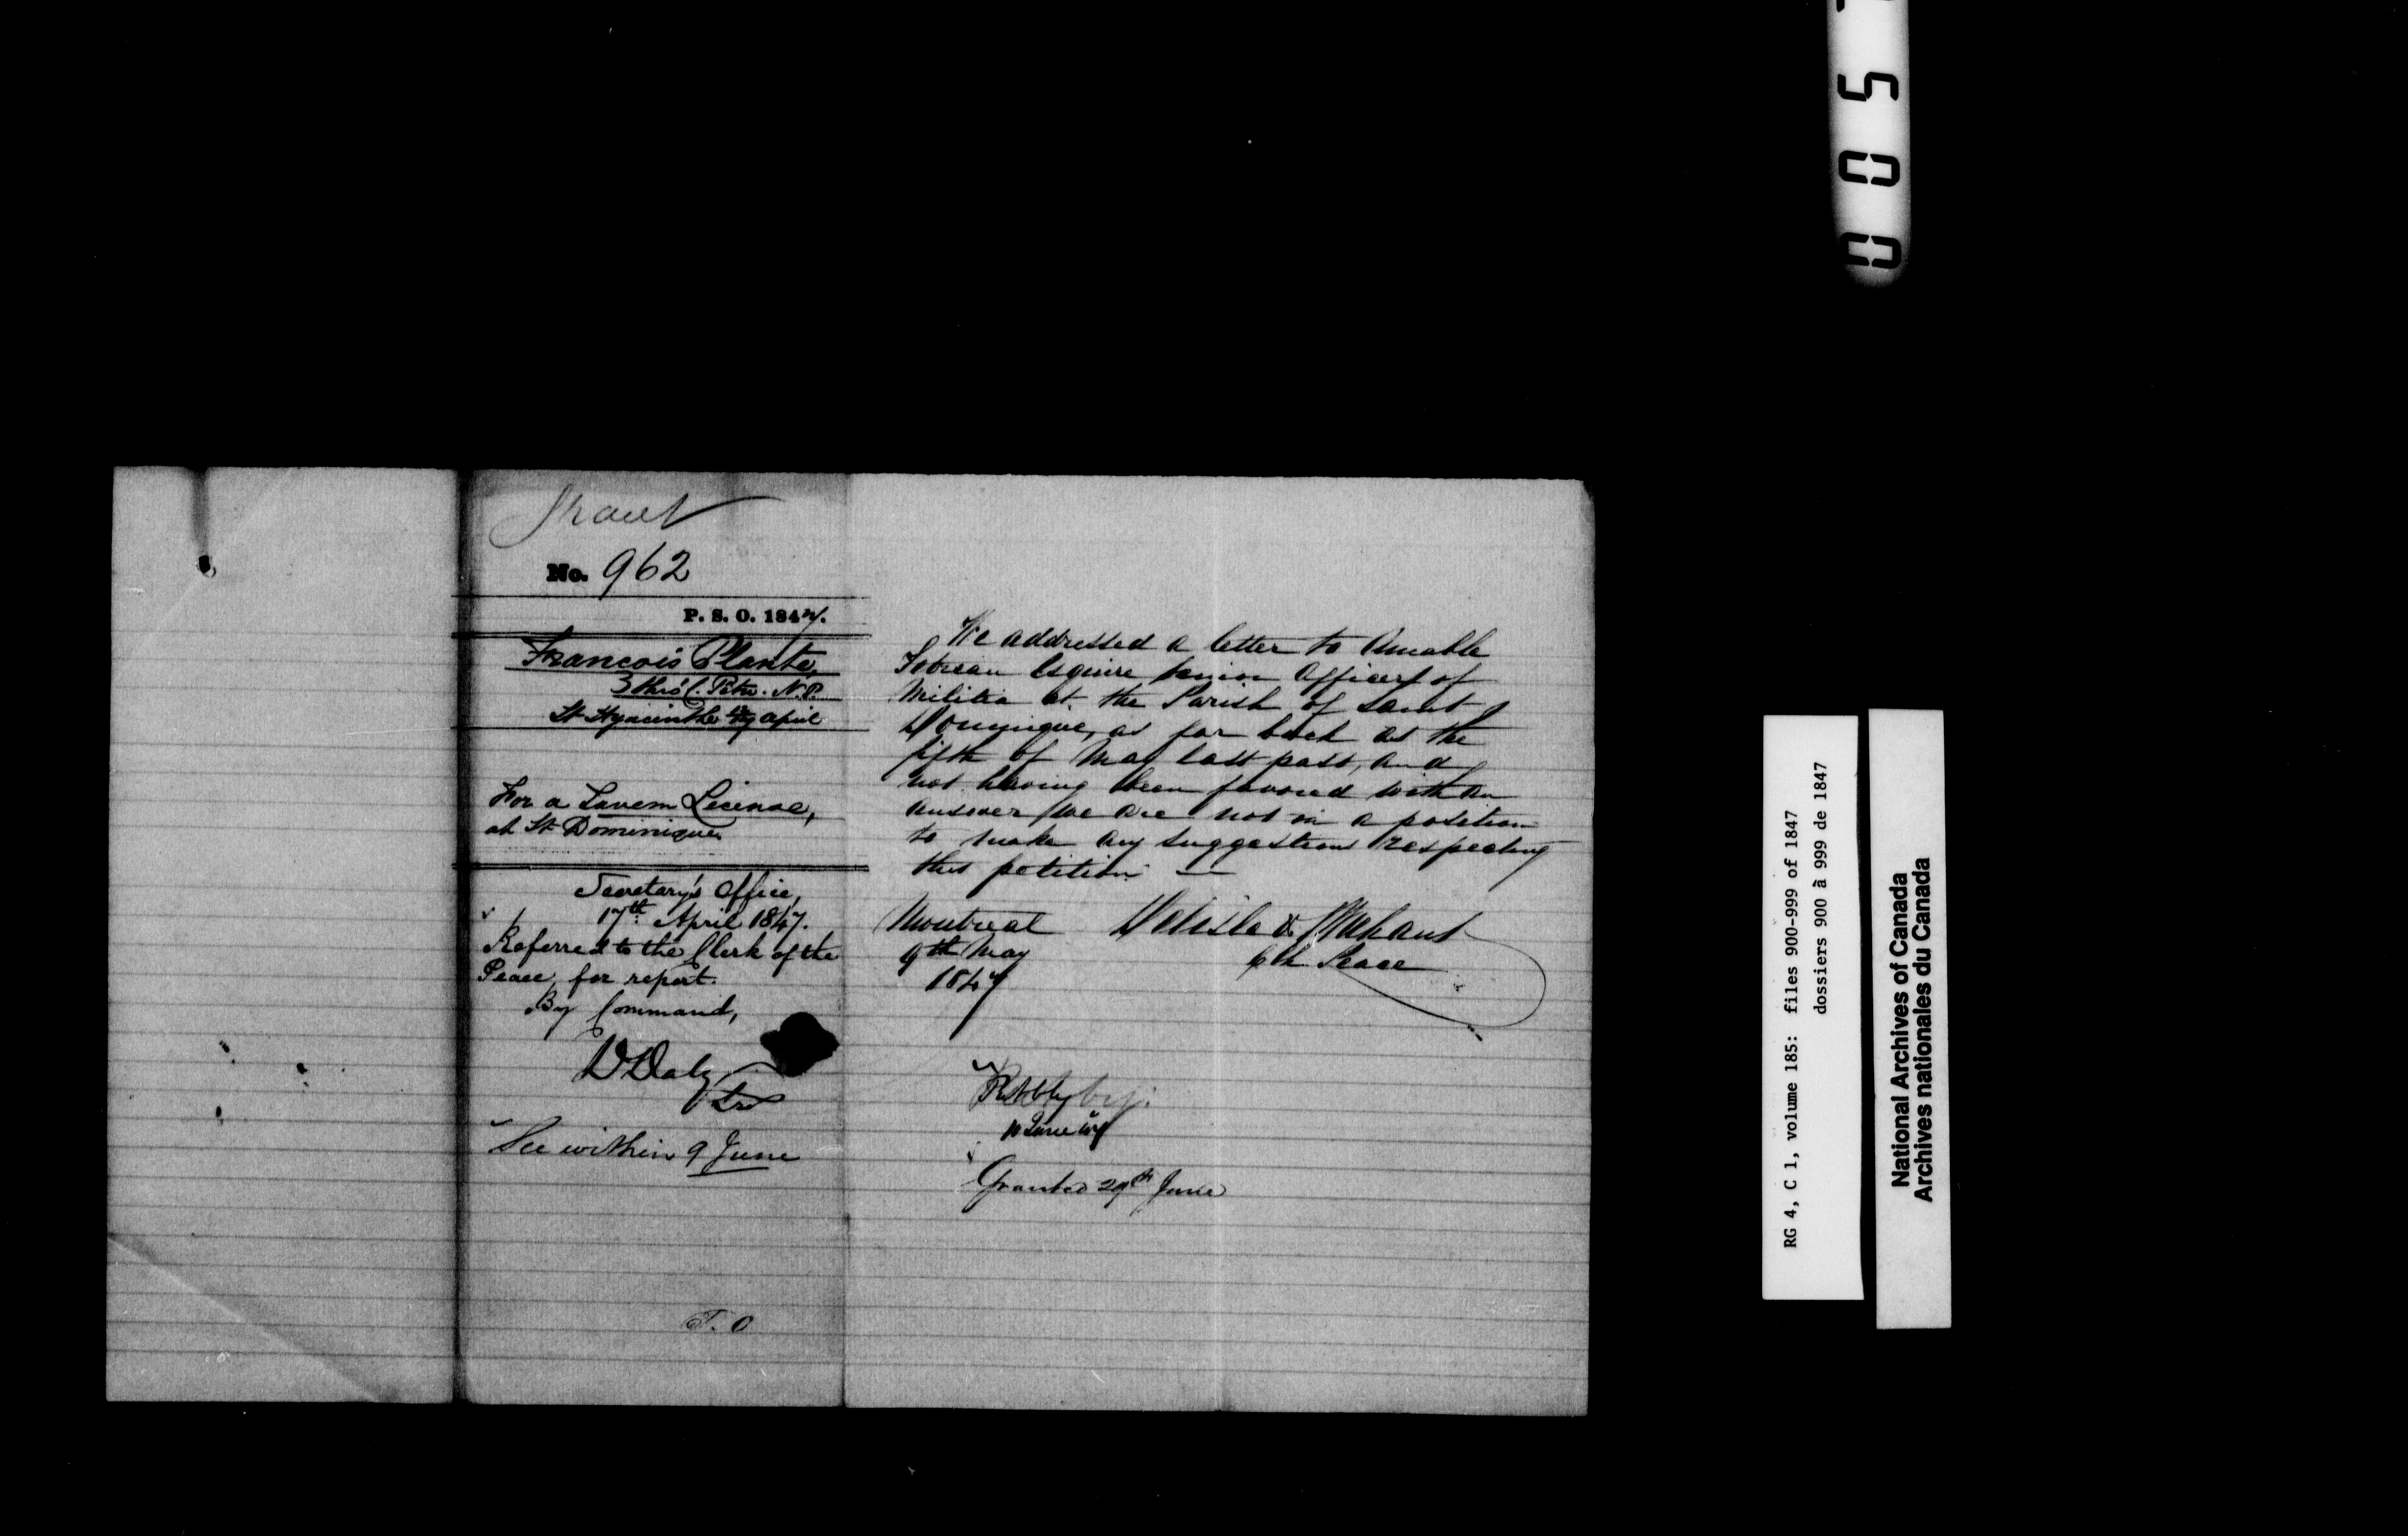 Grant
No. 962
P. S. O. 1847.
Francois Plante,
3 thro' C. Têtu. N.P.
St Hyacinthe April
For a Tavern License,
at St Dominique
Secretary's Office,
17th April 1847.
Referred to the Clerk of the
Peace, for report.
By Command,
D Daly
See within 9 June
T. O
We addressed a letter to Amable
Esquire Senior Officer of
Militia at the Parish of Saint
Dominique, as far back as the
fifth of May last past, and
not having been favored with an
answer we are not in a position
to make any suggestions respecting
this petition —
Montreal
9th May
1847
Delisle & Brehaut
Peace
June
Granted 29th June
0 0 5
RG 4, C 1, volume 185: files 900-999 of 1847
dossiers 900 à 999 de 1847
National Archives of Canada
Archives nationales du Canada